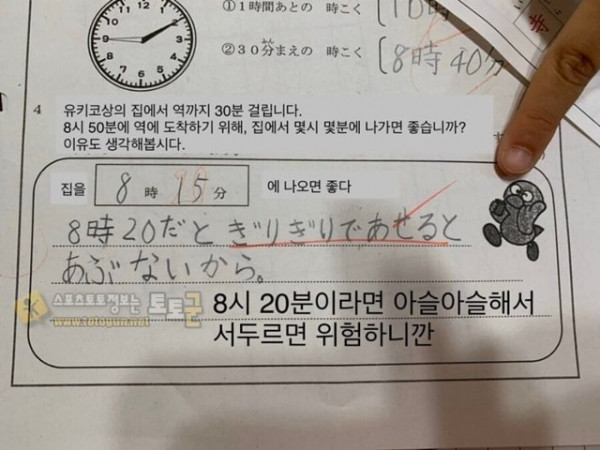 ①1時間あとの 時こく
②30分まえの 時こく
8時40分
4
유키코상의 집에서 역까지 30분 걸립니다.
8시 50분에 역에 도착하기 위해, 집에서 몇시 몇분에 나가면 좋습니까?
이유도 생각해봅시다.
집을 8 時 15 分 에 나오면 좋다
8時20だとぎりぎりであせると
あぶないから。
스포츠토토정보는 토토군
www.totogun.net
8시 20분이라면 아슬아슬해서
서두르면 위험하니깐